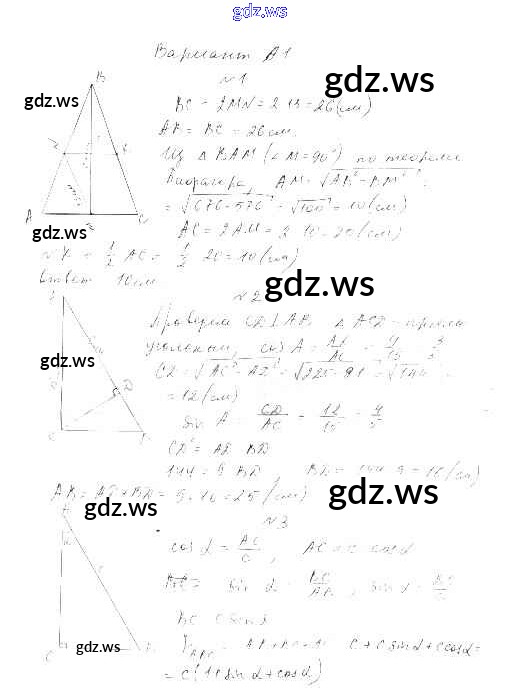 gdz.ws
Вариант А1
№1
gdz.ws
BC = 2MN = 2·13 = 26(см)
gdz.ws
AB = BC = 26 см.
Из △ BAM (∠M=90°) по теореме
Пифагора, AM = √AB² - BM² =
= √676 - 576 = √100 = 10(см)
gdz.ws
AC = 2AM = 2·10 = 20(см)
NK = 1/2 AC = 1/2 · 20 = 10(см)
Ответ 10 см
№2
gdz.ws
CD ⊥ AB, △ ACD - прямо
gdz.ws
угольный, cos A = AD/AC = 9/15 = 3/5
CD = √AC² - AD² = √225 - 81 = √144 =
= 12(см)
sin A = CD/AC = 12/15 = 4/5
CD² = AD BD
144 = 9 BD, BD = 144 9 = 16(см)
AB = AD + BD = 9 + 16 = 25(см)
gdz.ws
gdz.ws
№3
cos α = AC/c, AC = c cos α
sin α = BC/AB, sin α = BC/c
BC c sin α
gdz.ws
P ABC = AB + BC + AC c + c sin α + c cos α =
= c(1 + sin α + cos α)
gdz.ws